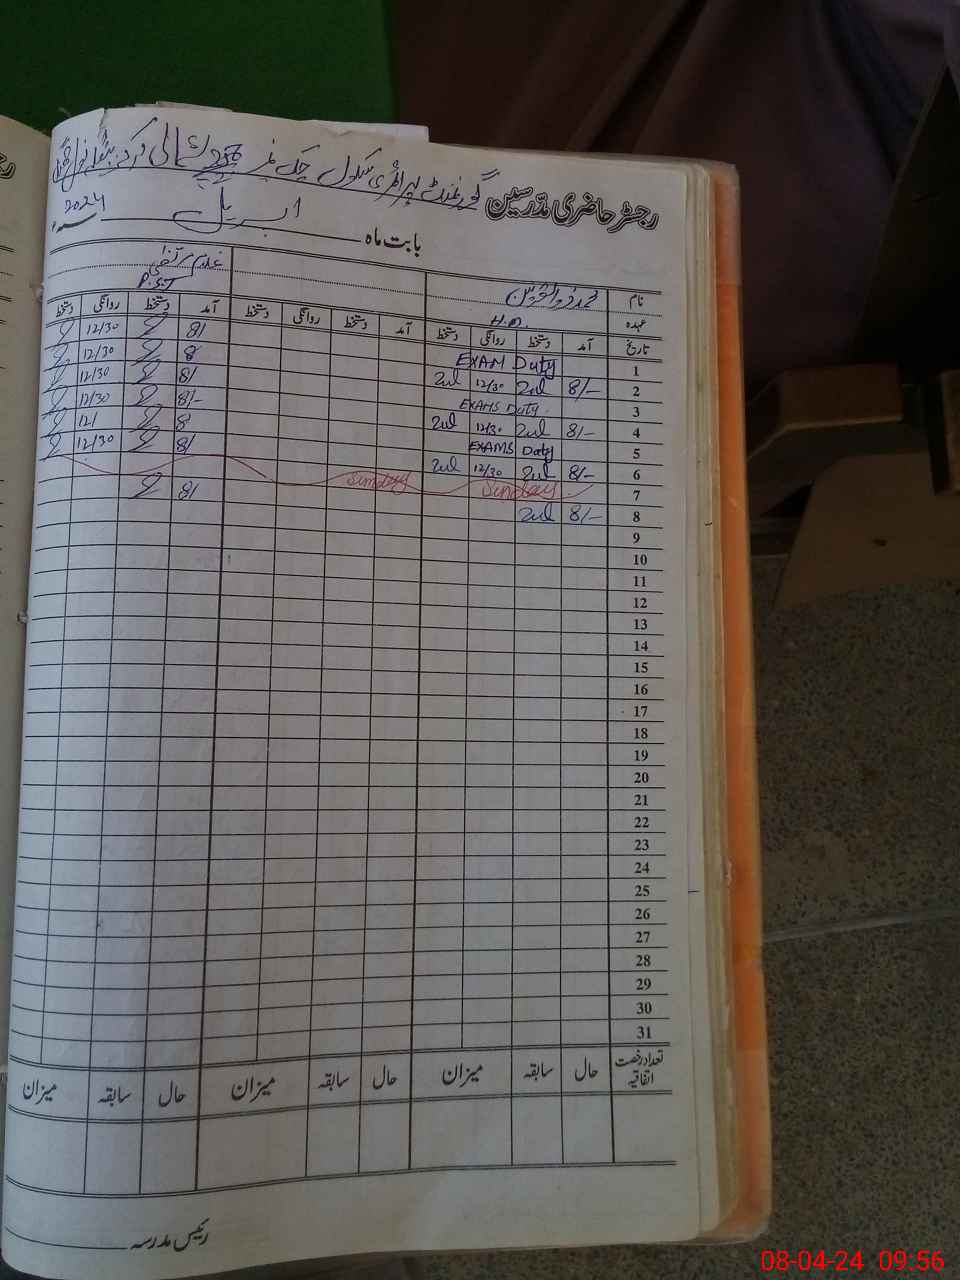 رجسٹر حاضری مدرسین گورنمنٹ پرائمری سکول چک نمبر شمالی
بابت ماہ اپریل 2024
نام محمد غلام مرتضیٰ
عہدہ H.M. P.S.T
تاریخ آمد دستخط روانگی دستخط آمد دستخط روانگی دستخط آمد دستخط روانگی دستخط
1 EXAM Duty 8/ 12/30
2 8/- 12/30 8 12/30
3 EXAMS Duty 8/ 12/30
4 8/- 12/30 8/- 12/30
5 EXAMS Duty 8 12/
6 8/- 12/30 8/ 12/30
7 Sunday Sunday
8 8/- 8/
9
10
11
12
13
14
15
16
17
18
19
20
21
22
23
24
25
26
27
28
29
30
31
تعداد رخصت اتفاقیہ حال سابقہ میزان حال سابقہ میزان حال سابقہ میزان
رئیس مدرسہ
08-04-24 09:56